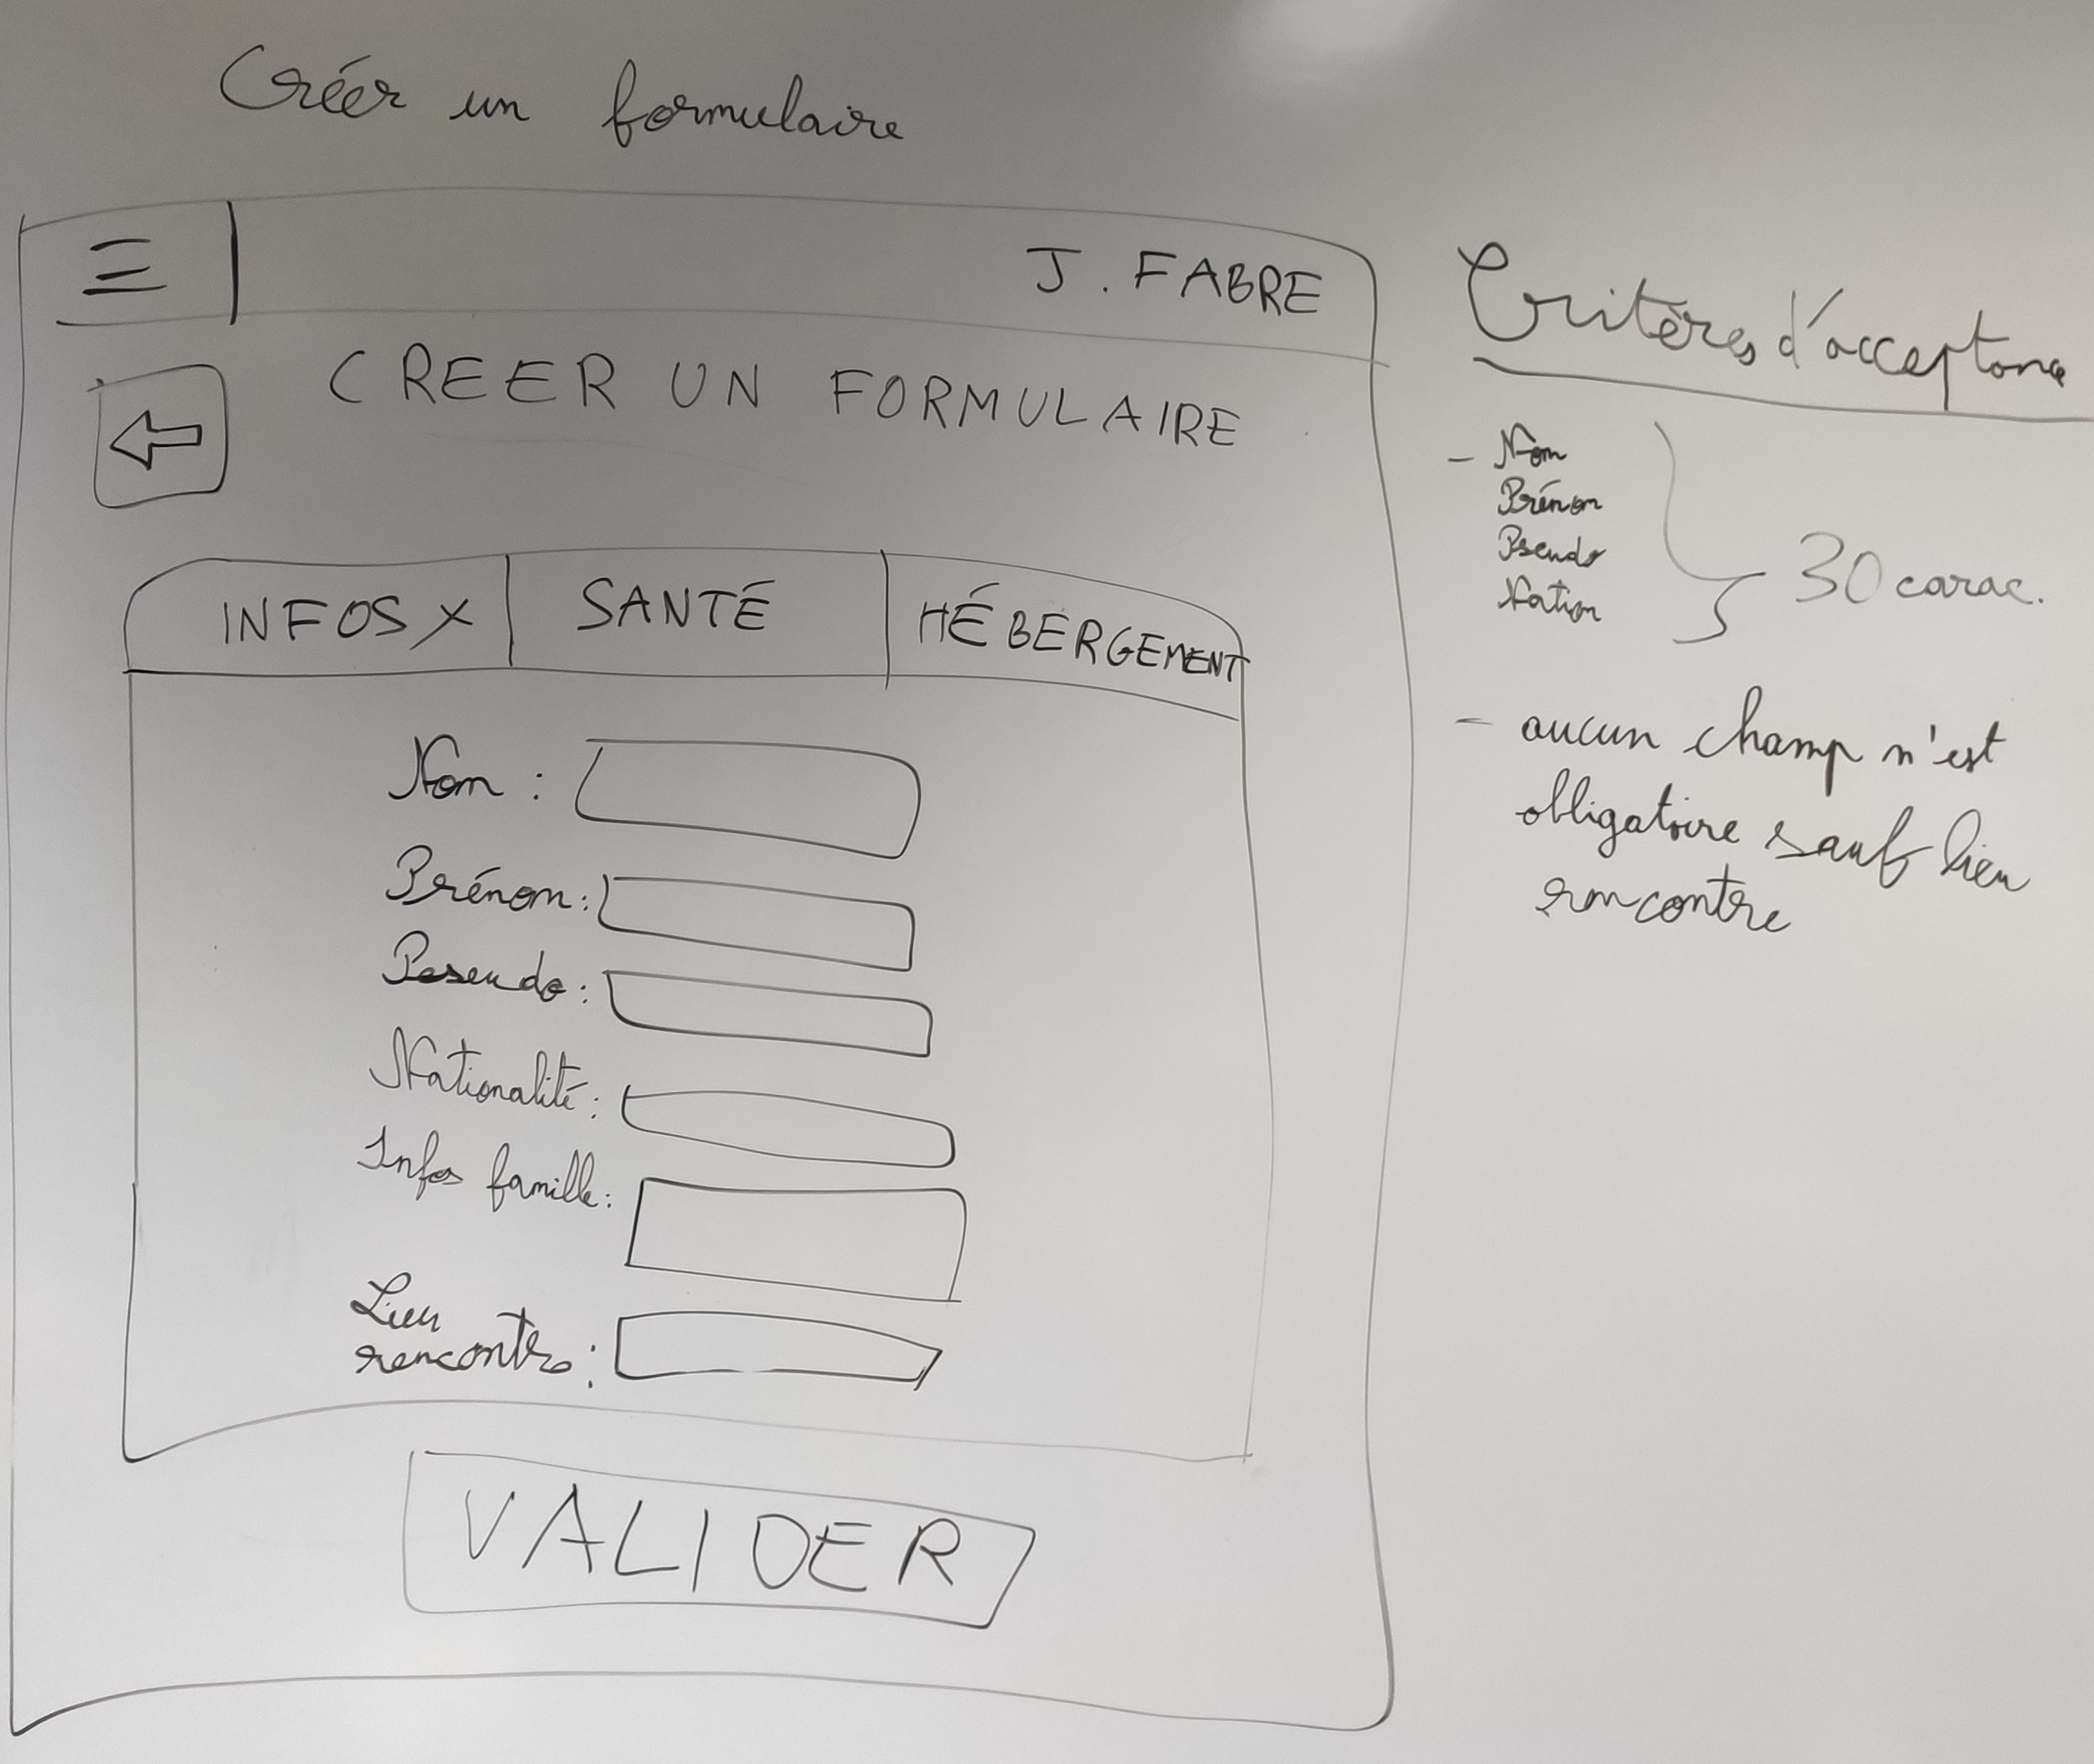 Créer un formulaire
J. FABRE
CREER UN FORMULAIRE
INFOS X
SANTÉ
HÉBERGEMENT
Nom :
Prénom :
Pseudo :
Nationalité :
Infos famille :
Lieu
rencontre :
VALIDER
Critères d'acceptance
- Nom
Prénom
Pseudo
Nation
30 carac.
- aucun champ n'est
obligatoire sauf lieu
rencontre